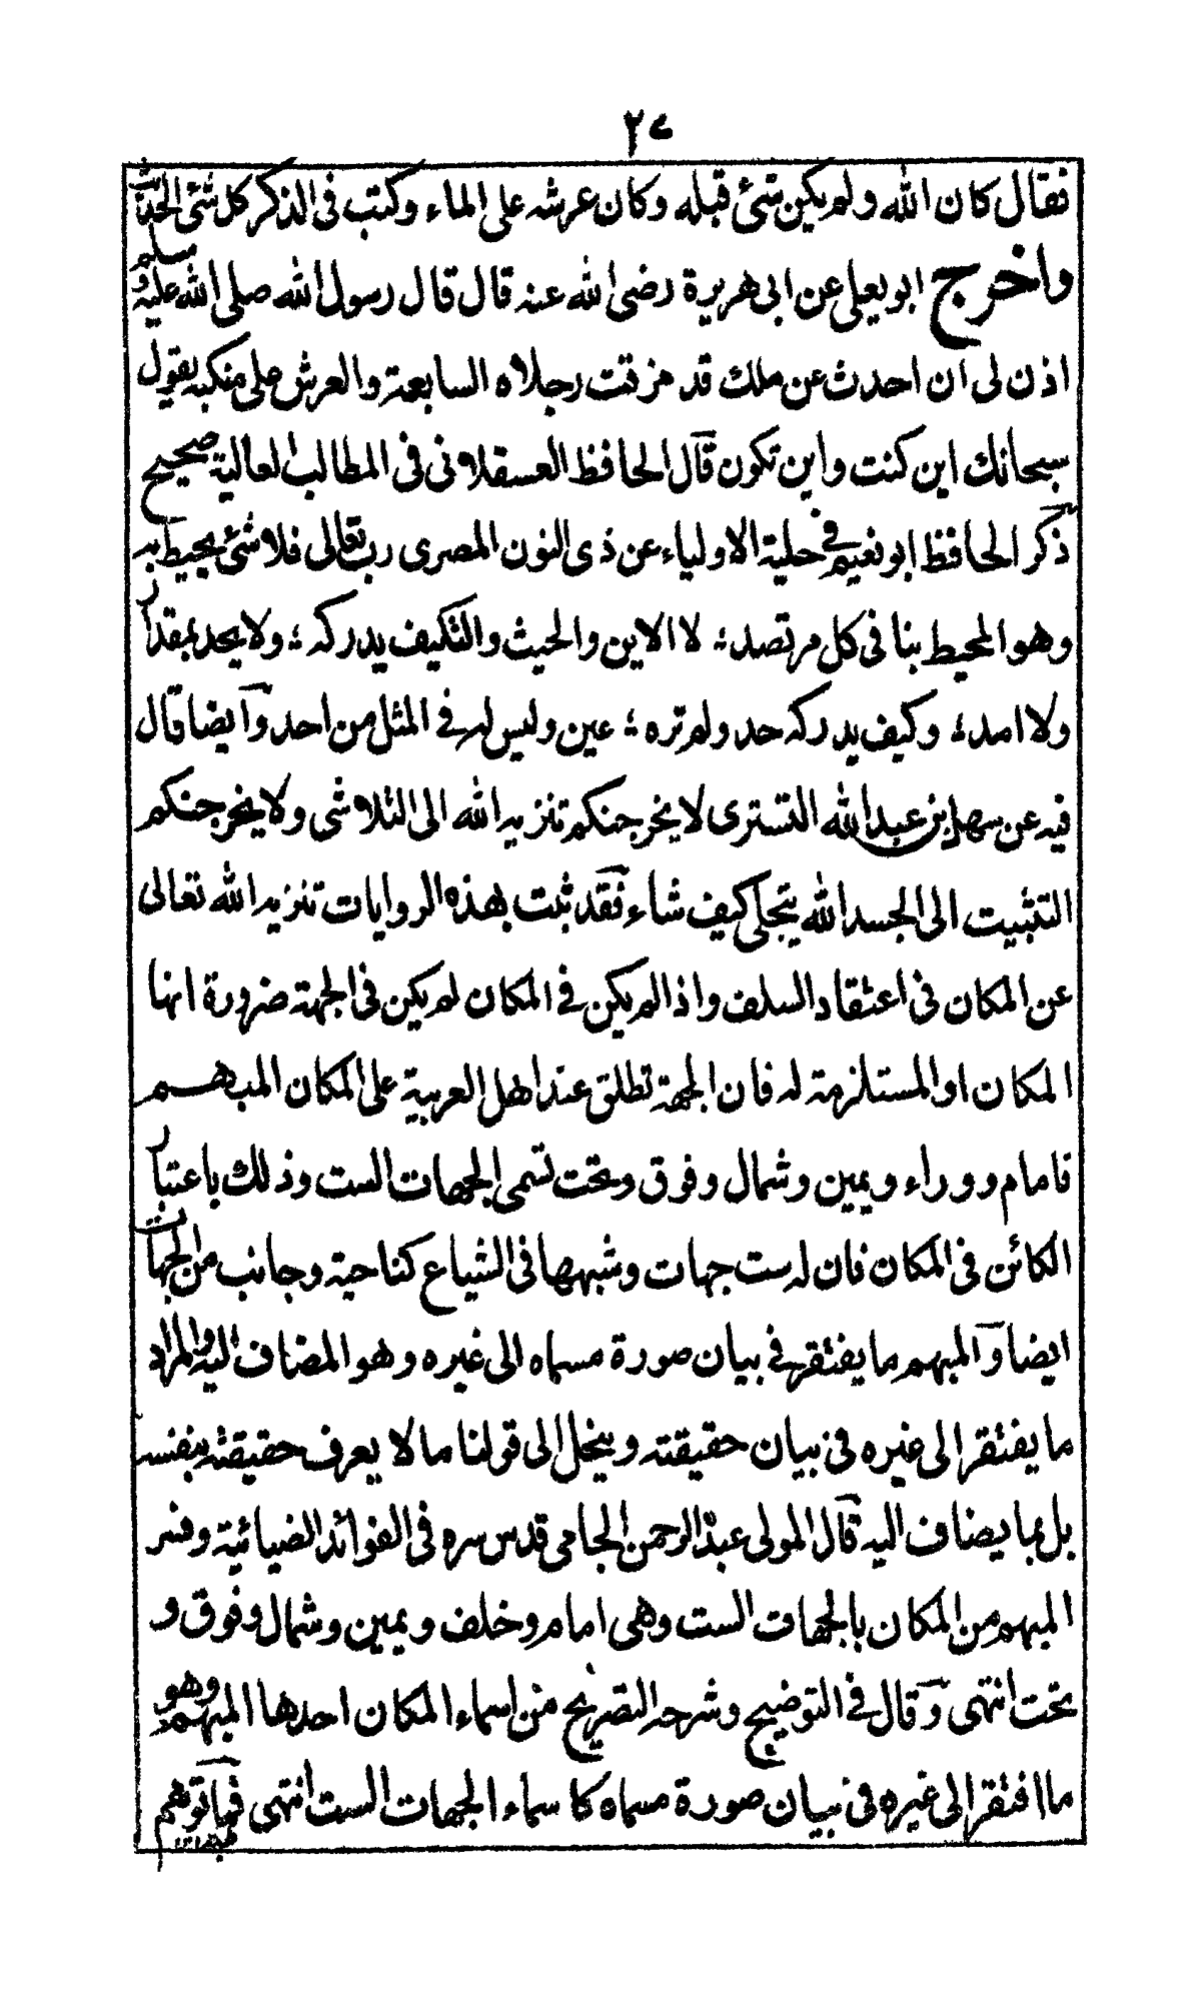 ٢٧
فقال كان الله ولم يكن شئ قبله وكان عرشه على الماء وكتب فى الذكر كل شئ الحديث
واخرج ابو يعلى عن ابى هريرة رضى الله عنه قال قال رسول الله صلى الله عليه وسلم
اذن لى ان احدث عن ملك قد مرقت رجلاه السابعة والعرش على منكبه يقول
سبحانك اين كنت واين تكون قال الحافظ العسقلانى فى المطالب العالية صحيح
ذكر الحافظ ابو نعيم فى حلية الاولياء عن ذى النون المصرى رب تعالى فلا شئ يحيط به
وهو المحيط بنا فى كل مرتصد؛ لا الاين والحيث والتكيف يدركه؛ ولا يحد بمقدار
ولا امد؛ وكيف يدركه حد ولم تره؛ عين وليس له فى المثل من احد وايضا قال
فيه عن سهل بن عبد الله التسترى لا يخرجنكم تنزيه الله الى التلاشى ولا يخرجنكم
التثبيت الى الجسد الله يتجلى كيف شاء فقد ثبت بهذه الروايات تنزيه الله تعالى
عن المكان فى اعتقاد السلف واذا لم يكن فى المكان لم يكن فى الجهة ضرورة انها
المكان او المستلزمة له فان الجهة تطلق عند اهل العربية على المكان المبهم
فامام ووراء ويمين وشمال وفوق وتحت تسمى الجهات الست وذلك باعتبار
الكائن فى المكان فان له ست جهات وشبهها فى الشياع كناحية وجانب من الجهات
ايضا والمبهم ما يفتقر فى بيان صورة مسماه الى غيره وهو المضاف اليه والمراد
ما يفتقر الى غيره فى بيان حقيقته وينحل الى قولنا ما لا يعرف حقيقته بنفسه
بل بما يضاف اليه قال المولى عبد الرحمن الجامى قدس سره فى الفوائد الضيائية وفسر
المبهم من المكان بالجهات الست وهى امام وخلف ويمين وشمال وفوق و
تحت انتهى وقال فى التوضيح وشرحه التصريح من اسماء المكان احدها المبهم وهو
ما افتقر الى غيره فى بيان صورة مسماه كاسماء الجهات الست انتهى فما توهم